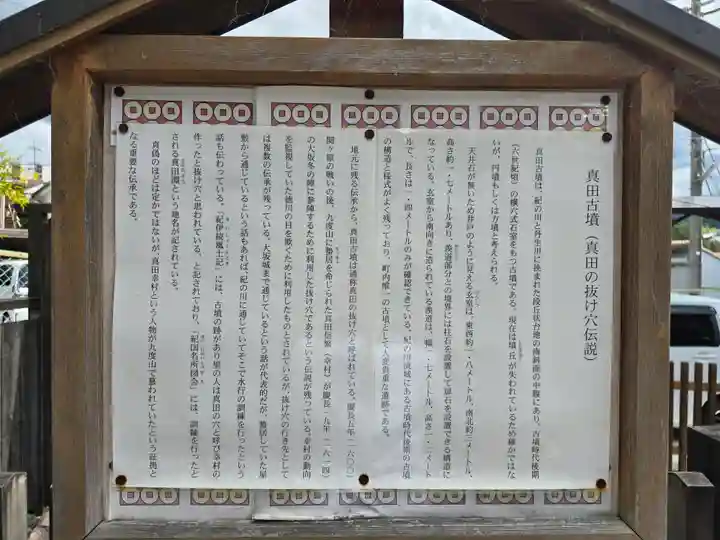 真田古墳（真田の抜け穴伝説）
真田古墳は、紀の川と丹生川に挟まれた段丘状台地の南斜面の中腹にあり、古墳時代後期
（六世紀頃）の横穴式石室をもつ古墳である。現在は墳丘が失われているため確かではな
いが、円墳もしくは方墳と考えられる。
天井石が無いため井戸のように見える玄室は、東西約一・八メートル、南北約三メートル、
高さ約一・七メートルあり、羨道部分との境界には柱石を設置して扉石を設置できる構造に
なっている。玄室から南向きに造られている羨道は、幅一・七メートル、高さ一・二メート
ルで、長さは一・四メートルのみが確認できている。紀の川流域にある古墳時代後期の古墳
の構造と様式がよく残っており、町内唯一の古墳として大変貴重な遺跡である。
地元に残る伝承から、真田古墳は通称真田の抜け穴と呼ばれている。慶長五年（一六〇〇）
関ヶ原の戦いの後、九度山に蟄居を命じられた真田信繁（幸村）が慶長一九年（一六一四）
の大坂冬の陣に参陣するために利用した抜け穴であるという伝説が残っている。幸村の動向
を監視していた徳川の目を欺くために利用したものとされているが、抜け穴の行き先として
は複数の伝承が残っている。大坂城まで通じているという話が代表的だが、蟄居していた屋
敷から通じているという話もあれば、紀の川に通じていてそこで水行の訓練を行ったという
話も伝わっている。「紀伊続風土記」には、古墳の跡があり里の人は真田の穴と呼び幸村の
作ったと抜け穴と思われている、と記されており、「紀国名所図会」には、訓練を行ったと
される真田淵という地名が記されている。
真偽のほどは定かではないが、真田幸村という人物が九度山で慕われていたという証拠と
なる重要な伝承である。